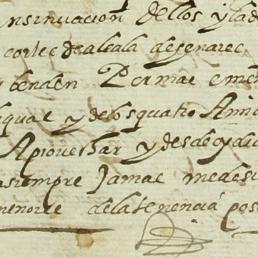 insinuacion dellos y la d
cortes de alcala de henares
y benden Por mas e men
qual y de los quatro Años
Aprovechar y desde oy dia
siempre Jamas me desis
menores de la tenencia pos